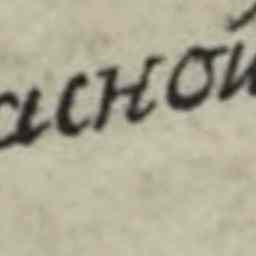 асной